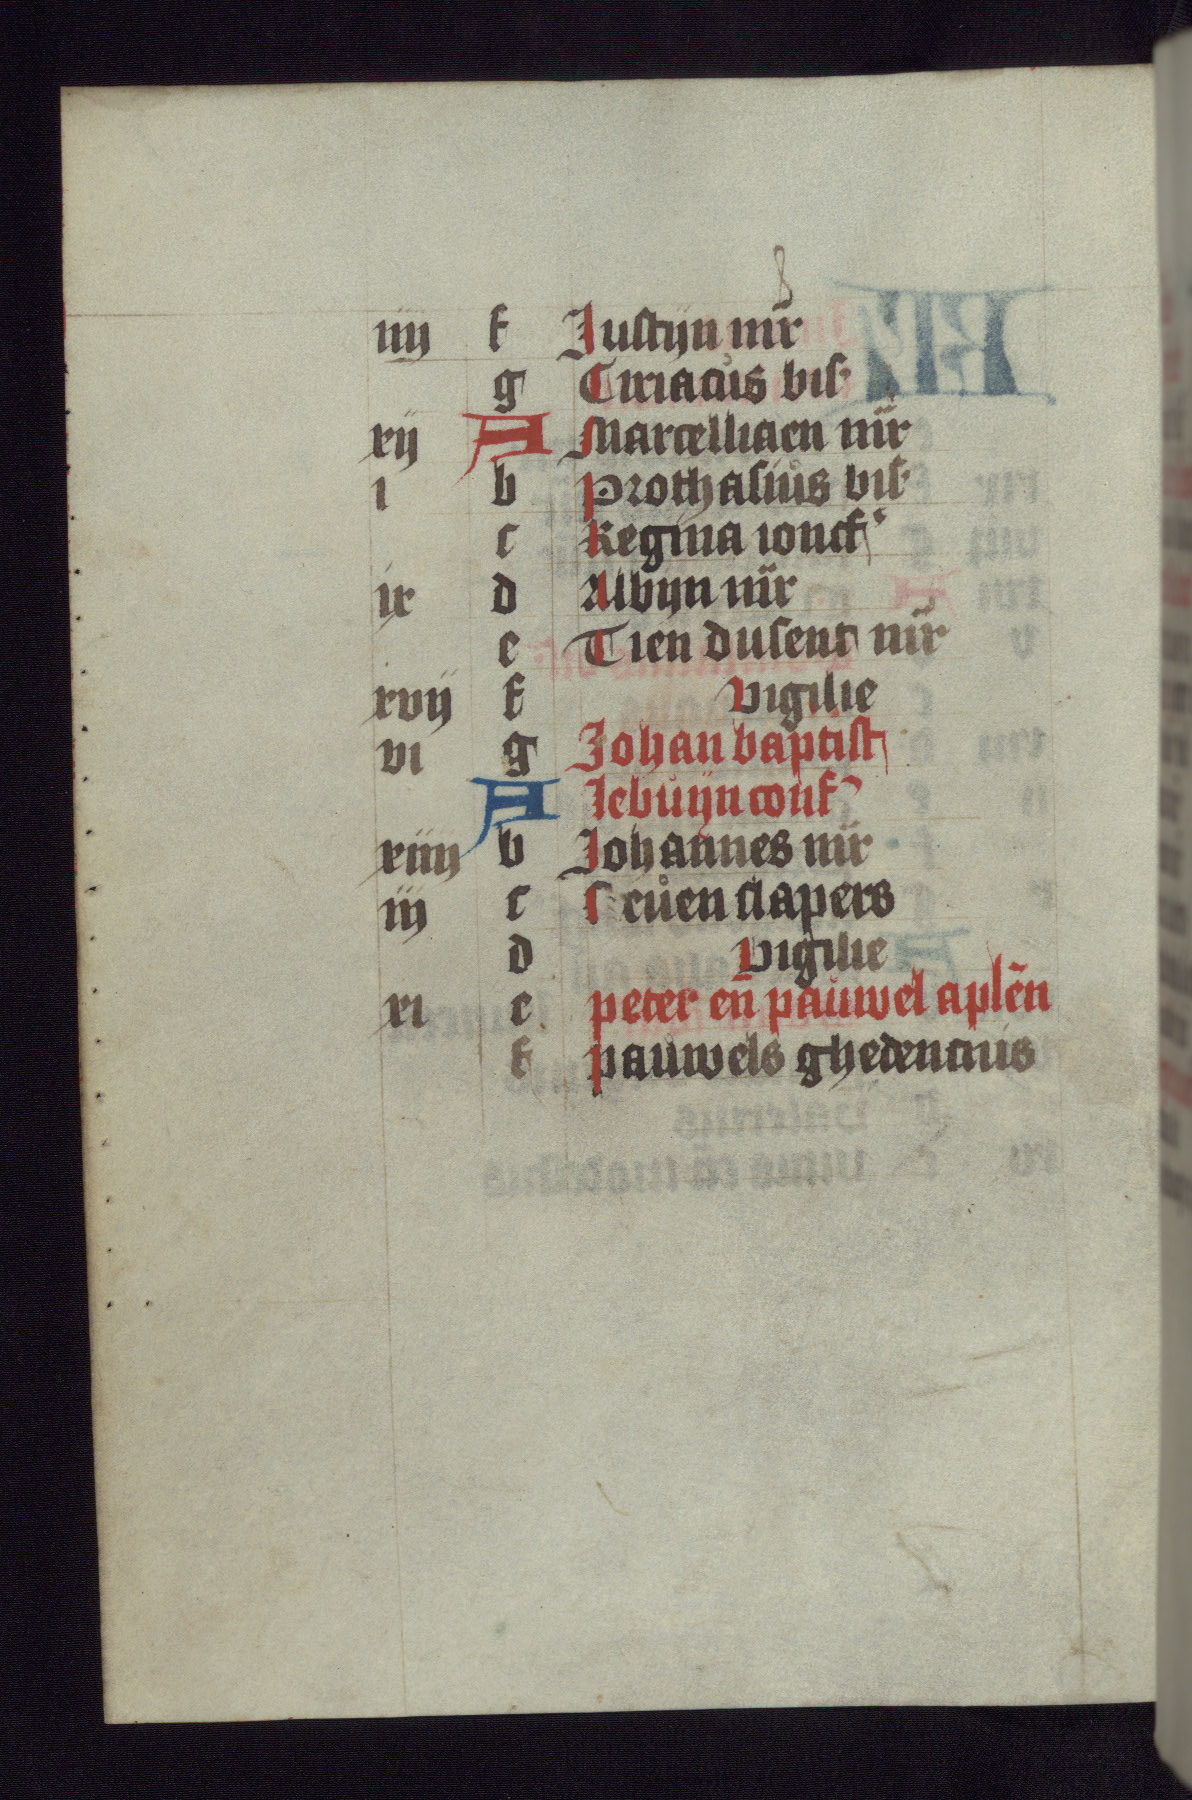 iiij f Justijn mr̄
g Ciriacus bis
xij A Marcelliaen mr̄
i b Prothasius bis
c Regina ioncfʾ
ix d Albijn mr̄
e Tien dusent mr̄
xvij f vigilie
vi g Johan baptist
A lebuijn conf
xiiij b Johannes mr̄
iij c Seuen slapers
d vigilie
xi e peter en̄ pauwel aplēn
f pauwels ghedencnis